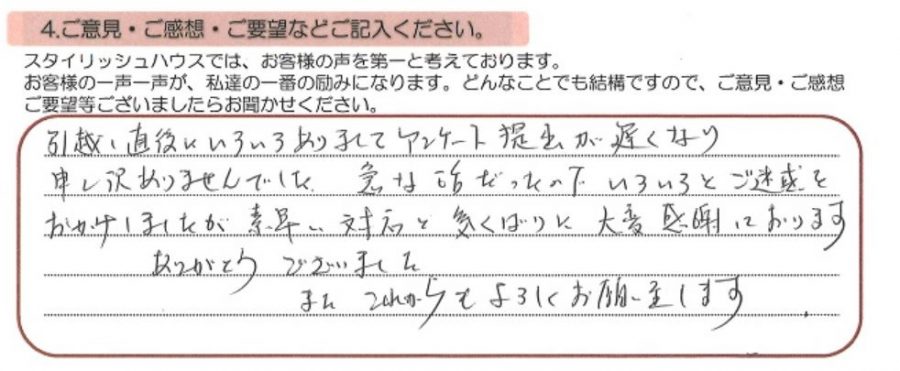 4.ご意見・ご感想・ご要望などご記入ください。
スタイリッシュハウスでは、お客様の声を第一と考えております。
お客様の一声一声が、私達の一番の励みになります。どんなことでも結構ですので、ご意見・ご感想
ご要望等ございましたらお聞かせください。
引越し直後にいろいろありましてアンケート提出が遅くなり
申し訳ありませんでした 急な話だったので いろいろとご迷惑を
おかけしましたが 素早い対応と気くばりに 大変感謝しております
ありがとうございました
また これからもよろしくお願い致します